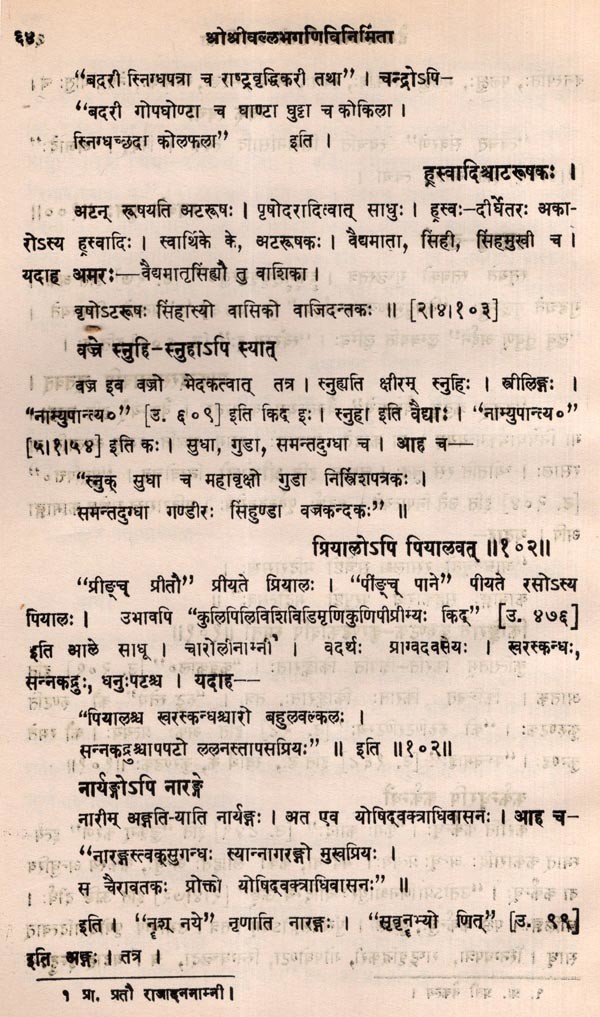 ६४
श्रीश्रीवल्लभगणिविनिर्मिता
“बदरी स्निग्धपत्रा च राष्ट्रवृद्धिकरी तथा” । चन्द्रोऽपि–
“बदरी गोपघोण्टा च घाण्टा घुट्टा च कोकिला ।
स्निग्धच्छदा कोलफला” इति ।
ह्रस्वादिश्चाटरूषकः ।
अटन् रूषयति अटरूषः । पृषोदरादित्वात् साधुः । ह्रस्वः–दीर्घेतरः अका-
रोऽस्य ह्रस्वादिः । स्वार्थिके के, अटरूषकः । वैद्यमाता, सिंही, सिंहमुखी च ।
यदाह अमरः—वैद्यमातृसिंह्यौ तु वाशिका ।
वृषोऽटरूषः सिंहास्यो वासिको वाजिदन्तकः ॥ [२।४।१०३]
वज्रे स्नुहि-स्नुहाऽपि स्यात्
वज्र इव वज्रो भेदकत्वात् तत्र । स्नुह्यति क्षीरम् स्नुहिः । स्त्रीलिङ्गः ।
“नाम्युपान्त्य०” [उ. ६०९] इति किद् इः । स्नुहा इति वैद्याः । “नाम्युपान्त्य०”
[५।१।५४] इति कः । सुधा, गुडा, समन्तदुग्धा च । आह च—
“स्नुक् सुधा च महावृक्षो गुडा निस्त्रिंशपत्रकः ।
समन्तदुग्धा गण्डीरः सिंहुण्डा वज्रकन्दकः” ॥
प्रियालोऽपि पियालवत् ॥१०२॥
“प्रीङ्च् प्रीतौ” प्रीयते प्रियालः । “पींङ्च् पाने” पीयते रसोऽस्य
पियालः । उभावपि “कुलिपिलिविशिविडिमृणिकुणिपीप्रीभ्यः किद्” [उ. ४७६]
इति आले साधू । चारोलीनाम्नी१ । वदर्थः प्राग्वदवसेयः । खरस्कन्धः,
सन्नकद्रुः, धनुःपटश्च । यदाह—
“पियालश्च खरस्कन्धश्चारो बहुलवल्कलः ।
सन्नकद्रुश्चापपटो ललनस्तापसप्रियः” ॥ इति ॥१०२॥
नार्यङ्गोऽपि नारङ्गे
नारीम् अङ्गति-याति नार्यङ्गः । अत एव योषिद्वक्त्राधिवासनः । आह च–
“नारङ्गस्त्वक्सुगन्धः स्यान्नागरङ्गो मुखप्रियः ।
स चैरावतकः प्रोक्तो योषिद्वक्त्राधिवासनः” ॥
इति । “नॄश् नये” नृणाति नारङ्गः । “सृवृनृभ्यो णित्” [उ. ९९]
इति अङ्गः । तत्र ।
१ प्रा. प्रतौ राजादननाम्नी ।